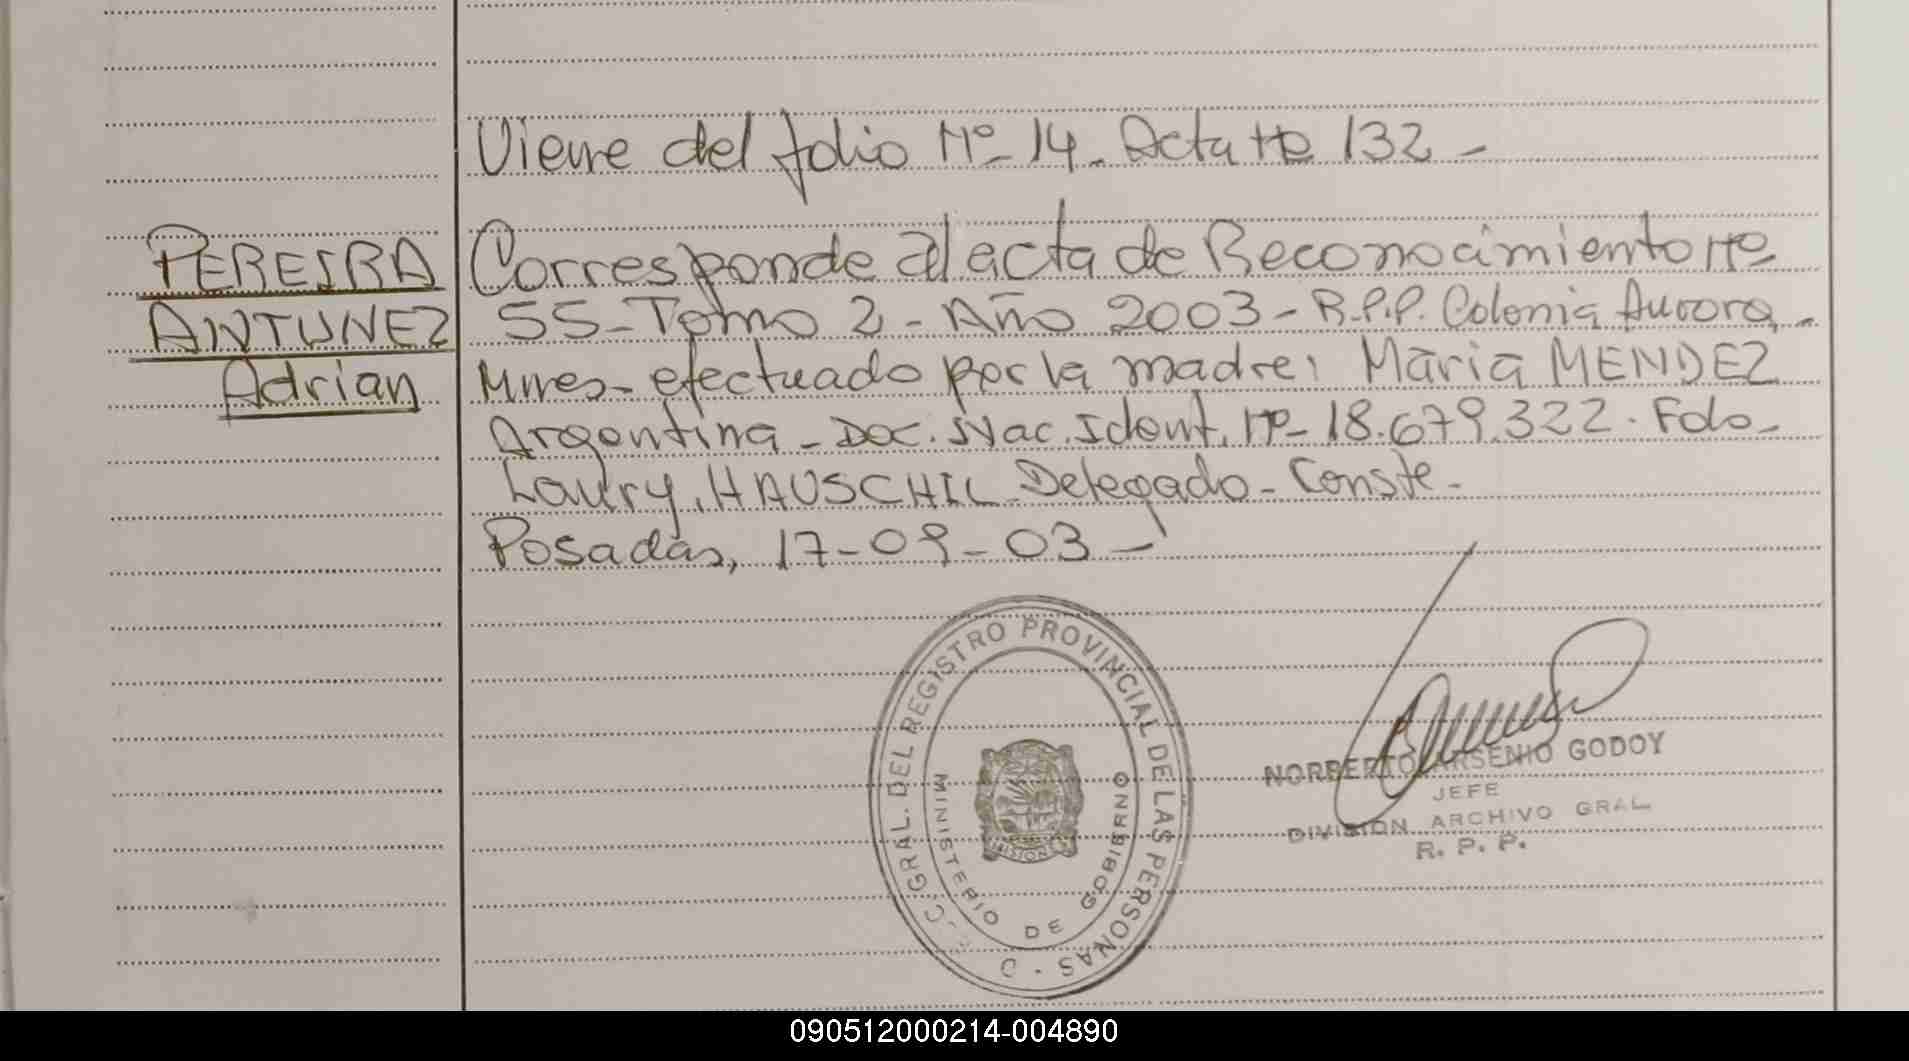 Viene del folio Nº 14. Acta Nº 132 -
PEREIRA
ANTUNEZ
Adrian
Corresponde al acta de Reconocimiento Nº
55 - Tomo 2 - Año 2003 - R.P.P. Colonia Aurora -
Mnes - efectuado por la madre: Maria MENDEZ
Argentina - Doc. Nac. Ident. Nº 18.679.322. Fdo -
Laury, HAUSCHIL Delegado - Conste -
Posadas, 17-09-03 -
GRAL. DEL REGISTRO PROVINCIAL DE LAS PERSONAS
MINISTERIO DE GOBIERNO
MISIONES
NORBERTO ARSENIO GODOY
JEFE
DIVISION ARCHIVO GRAL
R. P. P.
090512000214-004890